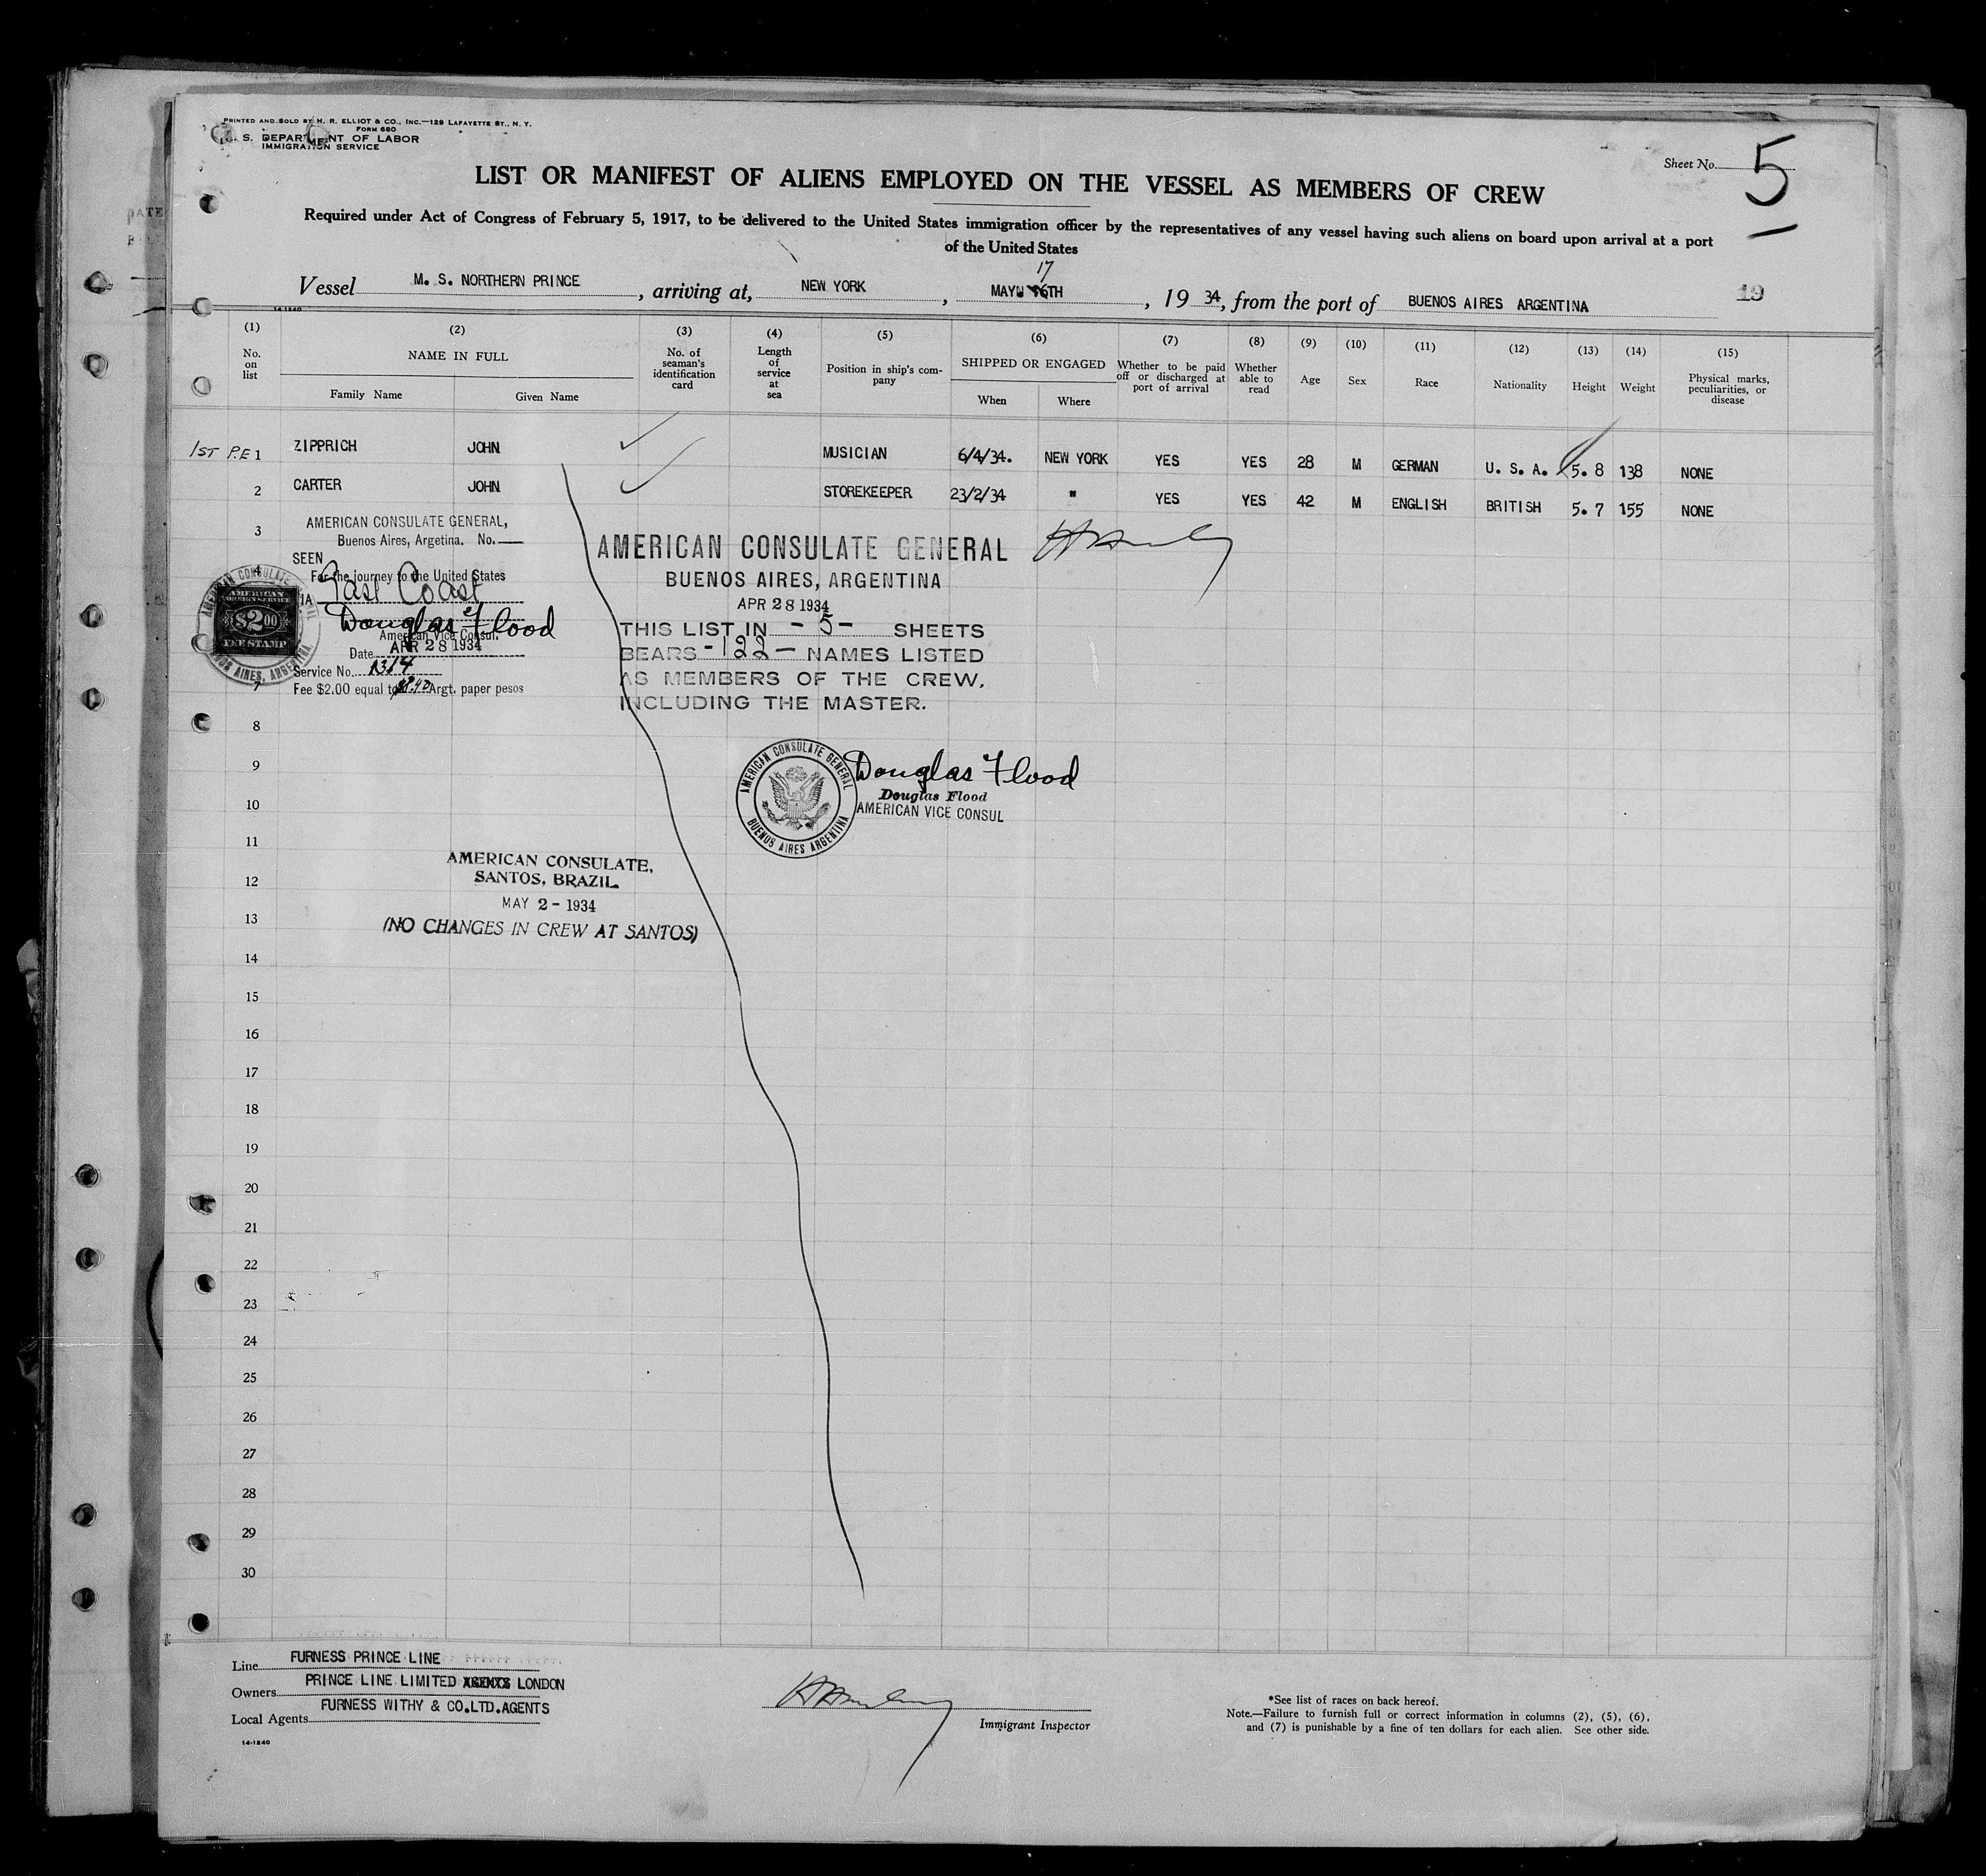 PRINTED AND SOLD BY H. R. ELLIOT & CO., INC.—129 LAFAYETTE ST., N. Y.
FORM 680
U. S. DEPARTMENT OF LABOR
IMMIGRATION SERVICE
Sheet No. 5
LIST OR MANIFEST OF ALIENS EMPLOYED ON THE VESSEL AS MEMBERS OF CREW
Required under Act of Congress of February 5, 1917, to be delivered to the United States immigration officer by the representatives of any vessel having such aliens on board upon arrival at a port
of the United States
17
Vessel M. S. NORTHERN PRINCE, arriving at, NEW YORK, MAY 16TH, 19 34, from the port of BUENOS AIRES ARGENTINA 19
14-1240
(1) (2) (3) (4) (5) (6) (7) (8) (9) (10) (11) (12) (13) (14) (15)
No. on list NAME IN FULL Family Name Given Name No. of seaman's identification card Length of service at sea Position in ship's company SHIPPED OR ENGAGED When Where Whether to be paid off or discharged at port of arrival Whether able to read Age Sex Race Nationality Height Weight Physical marks, peculiarities, or disease
1ST P.E 1 ZIPPRICH JOHN MUSICIAN 6/4/34. NEW YORK YES YES 28 M GERMAN U. S. A. 5. 8 138 NONE
2 CARTER JOHN STOREKEEPER 23/2/34 " YES YES 42 M ENGLISH BRITISH 5. 7 155 NONE
3
AMERICAN CONSULATE GENERAL,
Buenos Aires, Argetina. No.
SEEN
4
For the journey to the United States
VIA East Coast
Douglas Flood
American Vice Consul.
Date APR 28 1934
Service No. 1314
7
Fee $2.00 equal to Argt. paper pesos
AMERICAN CONSULATE GENERAL
BUENOS AIRES, ARGENTINA
AMERICAN
FOREIGN SERVICE
$2.00
FEE STAMP
AMERICAN CONSULATE GENERAL
BUENOS AIRES, ARGENTINA
APR 28 1934
THIS LIST IN - 5 - SHEETS
BEARS - 122 - NAMES LISTED
AS MEMBERS OF THE CREW,
INCLUDING THE MASTER.
8
9
10
AMERICAN CONSULATE GENERAL
BUENOS AIRES ARGENTINA
Douglas Flood
Douglas Flood
AMERICAN VICE CONSUL
11
AMERICAN CONSULATE,
SANTOS, BRAZIL.
12
MAY 2 - 1934
13
(NO CHANGES IN CREW AT SANTOS)
14
15
16
17
18
19
20
21
22
23
24
25
26
27
28
29
30
Line FURNESS PRINCE LINE
Owners PRINCE LINE LIMITED LONDON
Local Agents FURNESS WITHY & CO.LTD.AGENTS
14-1240
Immigrant Inspector
*See list of races on back hereof.
Note.—Failure to furnish full or correct information in columns (2), (5), (6),
and (7) is punishable by a fine of ten dollars for each alien. See other side.